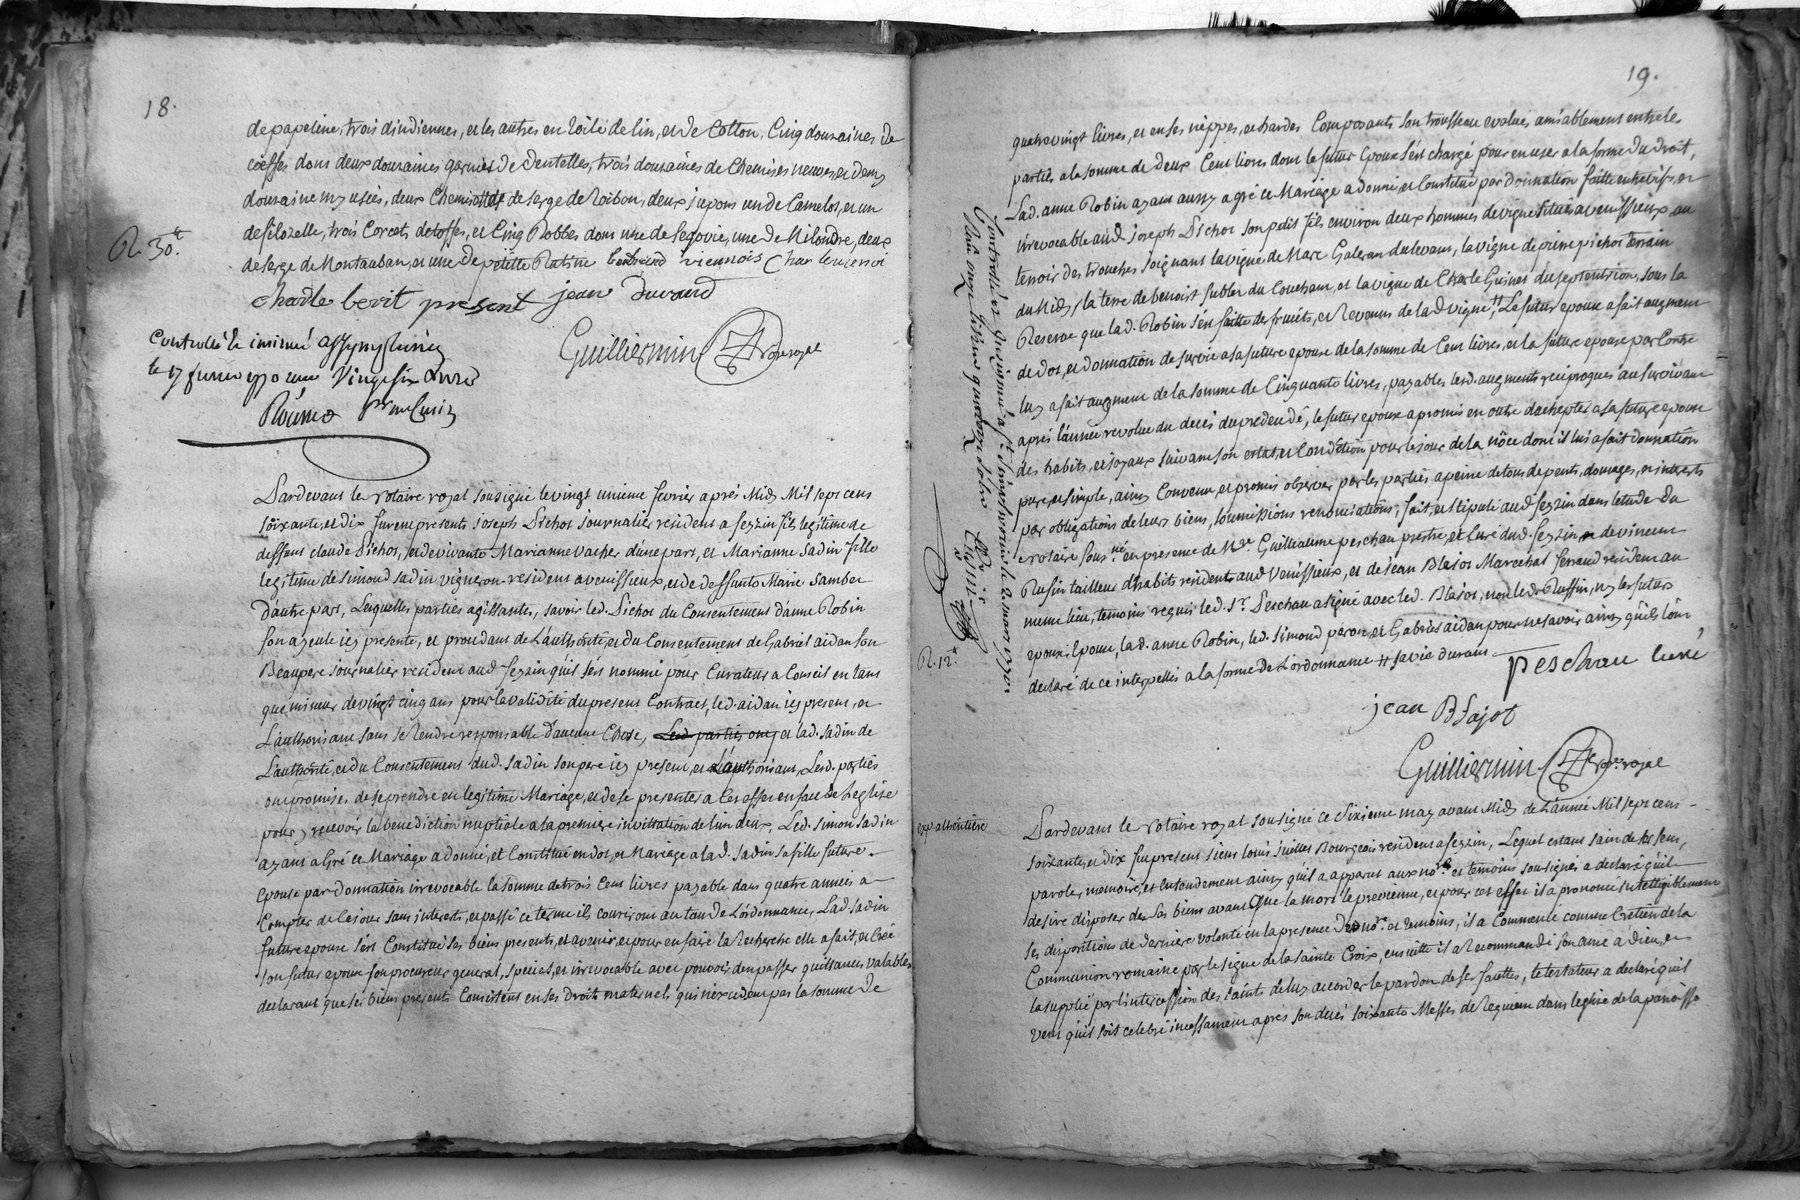 18.
de papeline, trois dindiennes, et les autres en toile de lin, et de Cotton, Cinq douzaines de
coeffes dont deux douzaines garnies de dentelles, trois douzaines de Chemises neuves, et demy
douzaine my usées, deux de serge de deux jupons un de Camelot, et un
de filozelle, trois Corcets detoffes, et Cinq Robbes dont une de Segovie, une de deux
de serge de Montauban, et une de petitte Ratine bertrand viennois
R. 30.tt
charle berit present jean durand
Controllé & insinué
le 17 fevrier 1770 vingt six livres
Guilliermin No.re royal
Pardevant le Notaire royal sousigné le vingt unieme fevrier aprés Midy Mil sept cens
soixante, et dix furent presents joseph Pichot journalier resident a feyzin fils legitime de
deffunt claude Pichot, et de vivante Marianne Vacher d'une part, et Marianne Sadin fille
legitime de Simond Sadin vigneron resident a venissieux, et de deffunte Marie
d'autre part, Lesquelles parties agissantes, savoir led. Pichot du Consentement d'anne Robin
son ayeule icy presente, et procedant de L'authorité, et du Consentement de Gabriel aidan son
Beaupere journalier resident aud. feyzin qu'il s'est nommé pour Curateur a Conseil en tant
que mineur de vingt cinq ans pour la validité du present Contract, led. aidan icy present, et
L'authorisant sans se Rendre responsable d'aucune Chose, Led. parties ont et lad. Sadin de
L'authorité, et du Consentement dud. Sadin son pere icy present, et L'authorisant, Lesd. parties
ont promises de se prendre en legitime Mariage, et de se presenter a Cet effet en face de Leglise
pour y recevoir la benediction nuptiale a la premiere invittation de l'un deux, Led. simon Sadin
ayant agré ce Mariage a donné, et Constitué en dot, et Mariage a lad. Sadin sa fille future
epouse par donnation irrevocable la somme de trois Cent livres payable dans quatre années a
Compter de Ce jour sans interets, et passé ce terme ils courriront au taux de L'ordonnance, Lad. Sadin
future epouse s'est Constitué ses biens presents, et avenir, et pour en faire la Recherche elle a fait, et Créé
son futur epoux son procureur general, special, et irrevocable avec pouvoir d'en passer quittances valables
declarant que ses biens presents Consistent en ses Droits maternels qui n'excedent pas la somme de
19.
quatrevingt livres, et en ses nippes, et hardes Composants son trousseau evalué amiablement entre les
parties a la somme de deux Cent livres dont le futur Epoux s'est chargé pour en user a la forme du droit,
Lad. anne Robin ayant aussy agré ce Mariage a donné, et Constitué par donnation faitte entre vifs, et
irrevocable aud. joseph Pichot son petit fils environ deux hommes de vigne situés a venissieux, au
terroir des trouches joignant la vigne de Marc Galeran du levant, la vigne de pierre pichot
du Midy, la terre de benoist Sublet du Couchant, et la vigne de Charle Guinet du septentrion, sous la
Reserve que lad. Robin s'en faitte de fruits, et Revenus de lad. vigne, # Le futur epoux a fait augment
de dot, et donnation de survie a sa future epouse de la somme de Cent livres, et la future epouse par Contre
luy a fait augment de la somme de Cinquante livres, payables lesd. augments reciproques au survivant
aprés l'année revolue du decés du predecedé, le futur epoux a promis en outre d'achepter a sa future epouse
des habits, et joyaux suivant son estat, et Condition pour le jour de la nôce dont il lui a fait donnation
pure, et simple, ainsy Convenu, et promis observer par les parties a peine de tous depents, domages, et interests
par obligations de leurs biens, soumissions renonciations, fait, et stipulé aud. feyzin dans letude du
Notaire sous.né en presence de M.re Guilleaume peschau prêtre, et Curé dud. feyzin de vincent
Rufin tailleur d'habits resident aud. Venissieux, et de jean Blajot Marechal ferrand resident au
meme lieu, temoins requis led. S.r Peschau a signé avec led. Blajot, non led. Ruffin, ny les futurs
epoux, lad. anne Robin, led. simond et Gabriel aidan pour ne savoir ainsy qu'ils l'ont
declaré de ce interpellés a la forme de L'ordonnance # sa vie durant
R. 12.tt
peschau curé
jean Blajot
Guilliermin No.re royal
Pardevant le Notaire royal sousigné ce Sixieme may avant Midy de L'année Mil sept cens
soixante, et dix fut present sieur louis juilles Bourgeois resident a feyzin, Lequel estant sain de ses sens,
parole, memoire, et entendement ainsy qu'il a apparut aux no.re et temoins sousignés a declaré qu'il
desire disposer de ses biens avant que la mort le previenne, et pour cet effet il a prononcé intelligiblement
ses dispositions de derniere volonté en la presence desd. no.re et temoins, il a Commencé comme Cretien de la
Communion romaine par le signe de la sainte Croix, en suitte il a Recommandé son ame a dieu, et
la supplié par l'intercession des saints de luy accorder le pardon de ses fauttes, le testateur a declaré qu'il
veut qu'il soit celebré incessament apres son decés soixante Messes de Requiem dans leglise de la paroisse